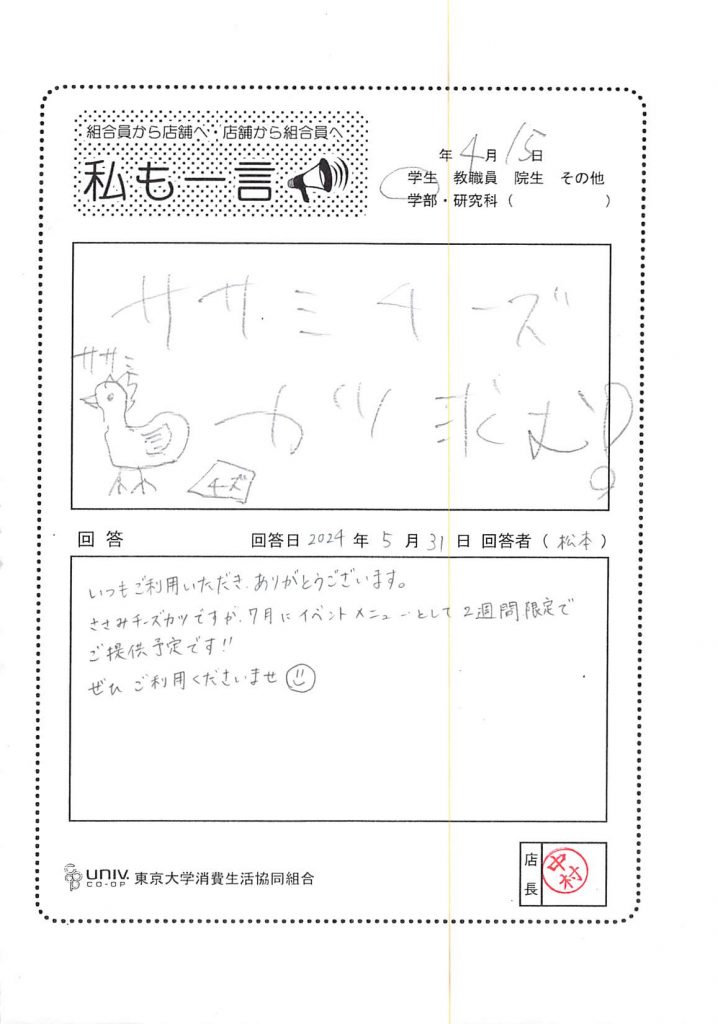 組合員から店舗へ・店舗から組合員へ
私も一言
年4月15日
学生 教職員 院生 その他
学部・研究科（ ）
ササミチーズ
カツ求む!
ササミ
チーズ
回答 回答日 2024年5月31日 回答者（松本）
いつもご利用いただき、ありがとうございます。
ささみチーズカツですが、7月にイベントメニューとして2週間限定で
ご提供予定です!!
ぜひご利用くださいませ
UNIV.
CO-OP
東京大学消費生活協同組合
店長
中村